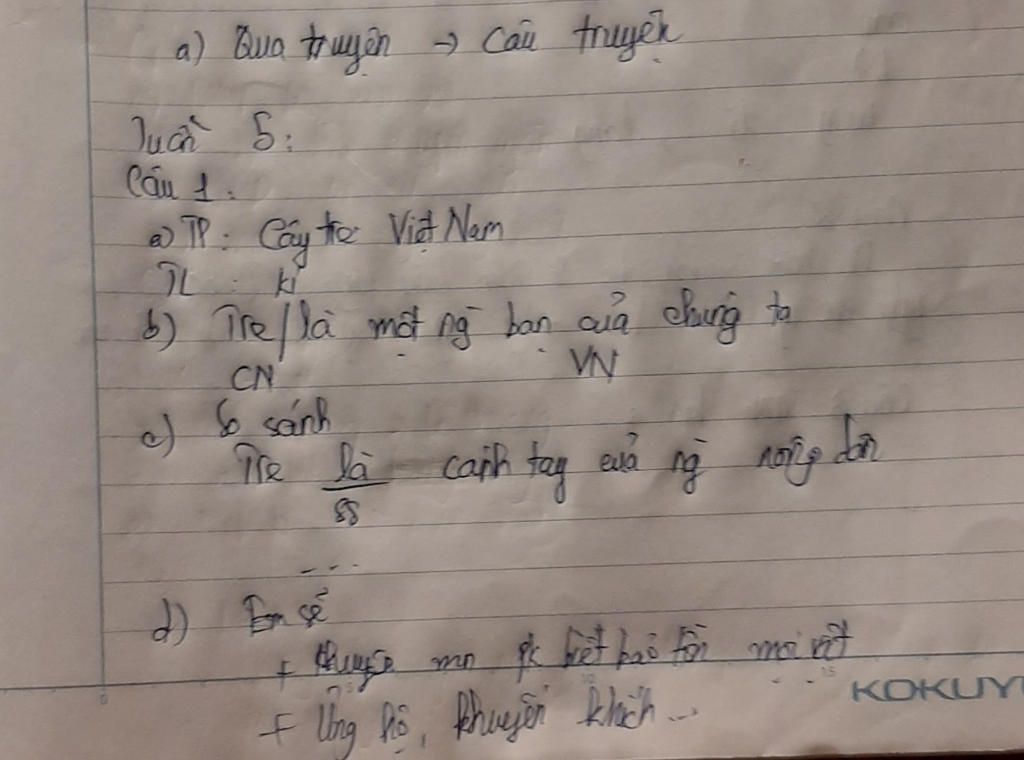 a) Qua truyện → Câu truyện
Tuần 5:
Câu 1:
a) TP: Cây tre Việt Nam
TL: kí
b) Tre / là một ng bạn của chúng ta
CN VN
c) So sánh
Tre là cánh tay của ng nông dân
SS
...
d) Em sẽ
+ khuyên mn pk biết bảo tồn mọi vật
+ Ủng hộ, khuyến khích...
KOKUY